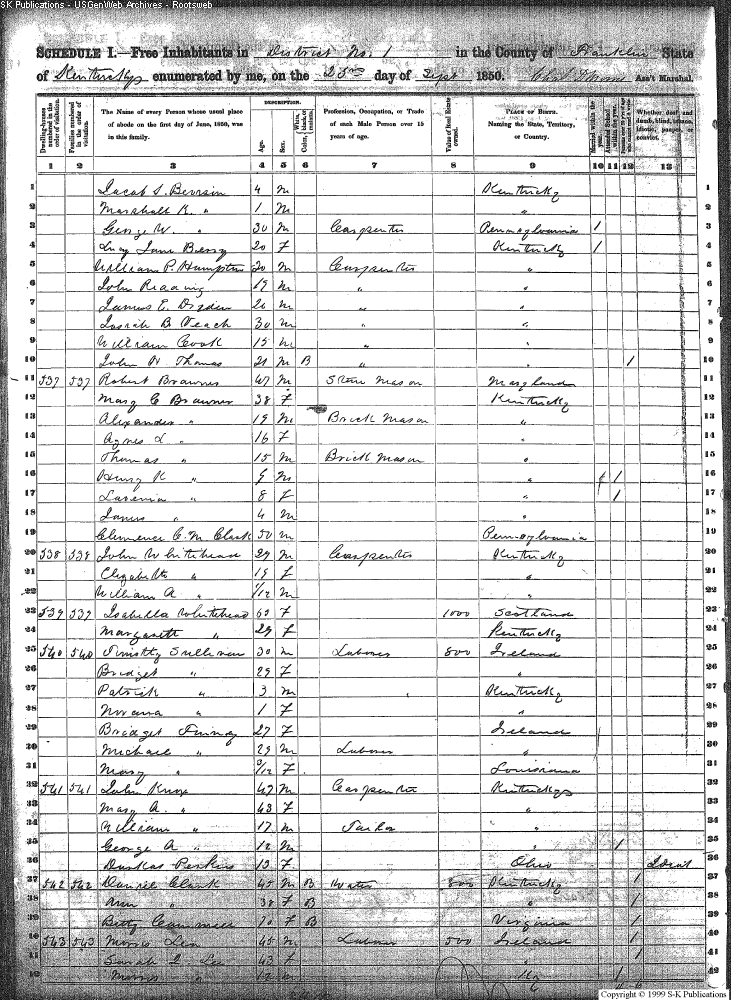 SK Publications - USGenWeb Archives - Rootsweb
SCHEDULE I.—Free Inhabitants in District No. 1 in the County of Franklin State
of Kentucky enumerated by me, on the 25 day of Sept 1850. Ass't Marshal.
DESCRIPTION.
Dwelling-houses numbered in the order of visitation. Families numbered in the order of visitation. The Name of every Person whose usual place of abode on the first day of June, 1850, was in this family. Age. Sex. Color, White, black, or mulatto. Profession, Occupation, or Trade of each Male Person over 15 years of age. Value of Real Estate owned. PLACE OF BIRTH. Naming the State, Territory, or Country. Married within the year. Whether deaf and dumb, blind, insane, idiotic, pauper, or convict.
1 2 3 4 5 6 7 8 9 10 11 12 13
1 Jacob S. 4 m Kentucky 1
2 Marshall K. " 1 m " 2
3 George W. " 30 m Carpenter Pennsylvania 1 3
4 Lucy Jane Berry 20 F Kentucky 1 4
5 William P. Hampton 20 m Carpenter " 5
6 John Reading 19 m " " 6
7 James E. 26 m " " 7
8 Josiah B. Veach 30 m " " 8
9 William Cook 15 m " 9
10 John W. Thomas 21 m B " " 1 10
11 537 537 Robert Brawner 47 m Stone Mason Maryland 11
12 Mary C Brawner 38 F Kentucky 12
13 Alexander " 19 m Brick Mason " 13
14 Agnes L " 16 F " 14
15 Thomas " 15 m Brick Mason " 15
16 Henry K " 9 m " 1 16
17 " 8 F " 1 17
18 James " 4 m 18
19 Clemence C. M. Clark 50 m Pennsylvania 19
20 538 538 John Whitehead 29 m Carpenter Kentucky 20
21 Elizabeth " 19 F " 21
22 William A " 1/12 m " 22
23 539 539 Isabella Whitehead 63 F 1000 Scotland 23
24 Margarett " 29 F Kentucky 24
25 540 540 Timothy Sullivan 30 m Laborer 800 Ireland 25
26 Bridget " 29 F " 26
27 Patrick " 3 m Kentucky 27
28 " 1 F " 28
29 Bridget 27 F Ireland 29
30 Michael " 29 m Laborer " 30
31 Mary " /12 F Louisiana 31
32 541 541 John Knox 47 m Carpenter Kentucky 32
33 Mary A. " 43 F " 33
34 William " 17 m Tailor " 34
35 George A " 12 m " 1 35
36 Perkins 13 F Ohio Idiot 36
37 542 542 Daniel Clark 45 m B 800 Kentucky 1 37
38 Ann " 38 F B " 1 38
39 Betty 70 F B Virginia 1 39
40 543 543 Morris Lea 45 m Laborer 500 Ireland 1 40
41 Sarah Lea 43 F " 1 41
42 Morris " 12 m Ky 1 42
Copyright © 1999 S-K Publications